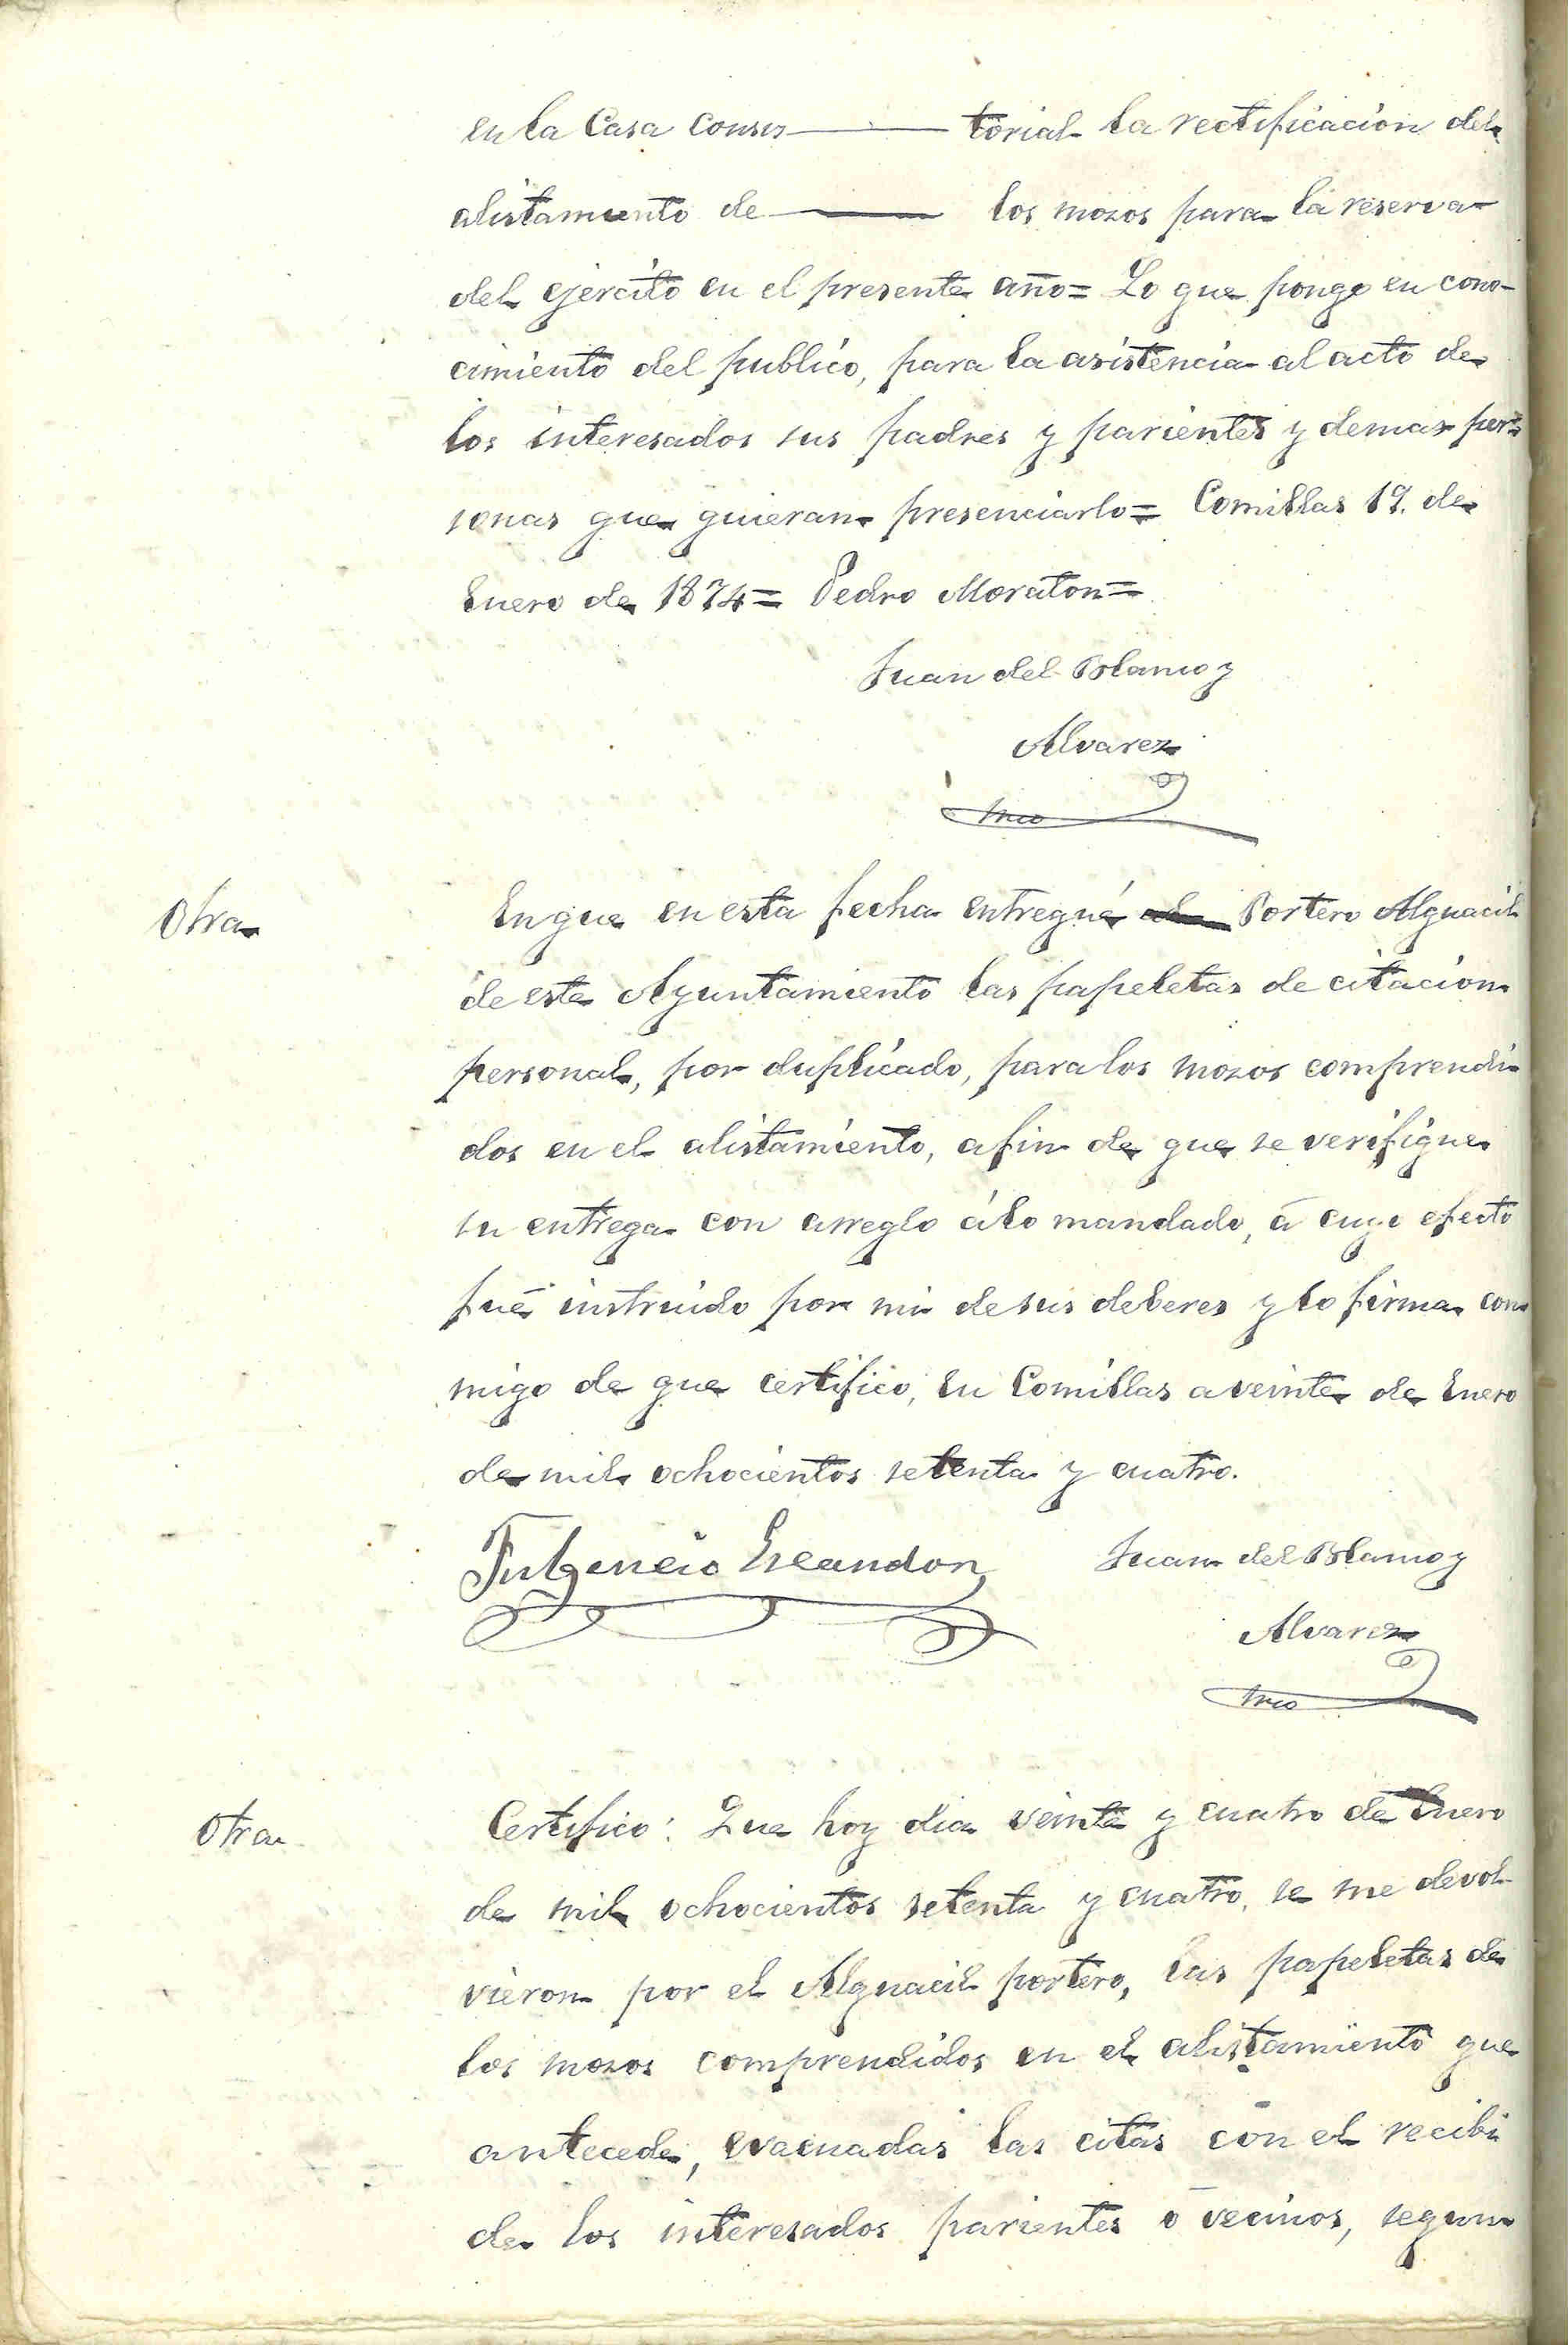 en la Casa consis— torial la rectificacion del
alistamiento de — los mozos para la reserva
del ejercito en el presente año= Lo que pongo en cono-
cimiento del publico, para la asistencia al acto de
los interesados sus padres y parientes y demas per-
sonas que quieran presenciarlo= Comillas 19. de
Enero de 1874= Pedro Moraton=
Juan del Blanco y
Alvarez
Srio
Otra
En que en esta fecha entregué al Portero Alguacil
de este Ayuntamiento las papeletas de citacion
personal, por duplicado, para los mozos comprendi-
dos en el alistamiento, afin de que se verifique
su entrega con arreglo álo mandado, á cuyo efecto
fué instruido por mi de sus deberes y lo firma con
migo de que certifico, En Comillas a veinte de Enero
de mil ochocientos setenta y cuatro.
Fulgencio Escandon
Juan del Blanco y
Alvarez
Srio
Otra
Certifico: Que hoy dia veinte y cuatro de Enero
de mil ochocientos setenta y cuatro, se me devol-
vieron por el Alguacil portero, las papeletas de
los mozos comprendidos en el alistamiento que
antecede, evacuadas las citas con el recibi
de los interesados parientes ó vecinos, segun